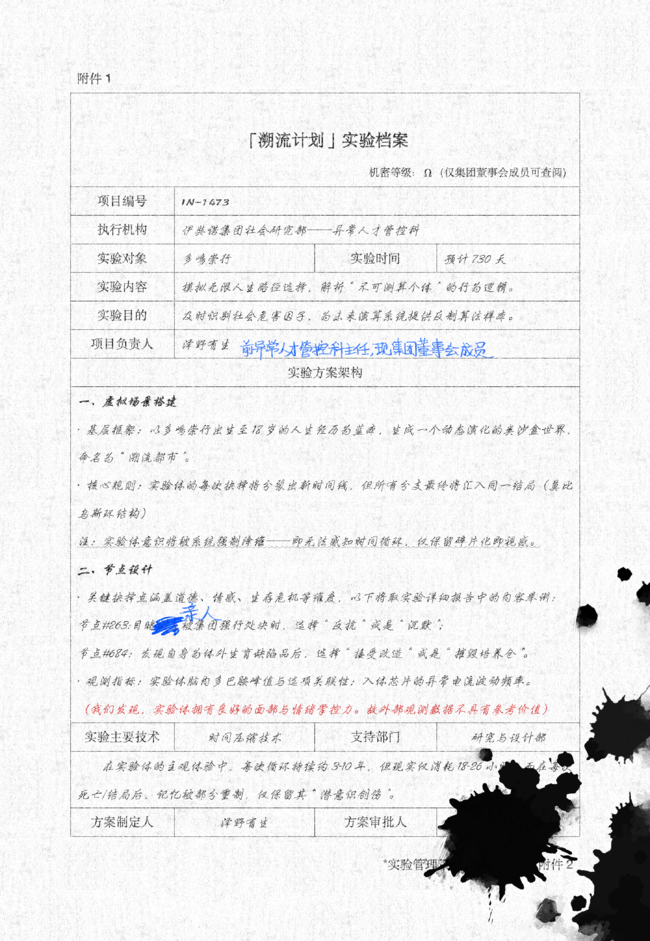 附件 1
「溯流计划」实验档案
机密等级： Ω （仅集团董事会成员可查阅）
项目编号 IN-1473
执行机构 伊甸诺集团社会研究部——异常人才管控科
实验对象 多鸣崇行 实验时间 预计 730 天
实验内容 模拟无限人生路径选择，解析“不可测算个体”的行为逻辑。
实验目的 及时识别社会危害因子，为未来演算系统提供反制算法样本。
项目负责人 泽野有生 前异常人才管控科主任，现集团董事会成员
实验方案架构
一、虚拟场景搭建
· 基层框架：以多鸣崇行出生至18岁的人生经历为蓝本，生成一个动态演化的类沙盒世界，
命名为“溯流都市”。
· 核心规则：实验体的每次抉择将分裂出新时间线，但所有分支最终将汇入同一结局（莫比
乌斯环结构）
注：实验体意识将被系统强制降维——即无法感知时间循环，仅保留碎片化即视感。
二、节点设计
· 关键抉择点涵盖道德、情感、生存危机等维度，以下将取实验详细报告中的内容举例：
亲人
节点#263:目睹 被集团强行处决时，选择“反抗”或是“沉默”；
节点#684：发现自身为体外生育缺陷品后，选择“接受改造”或是“摧毁培养仓”。
· 观测指标：实验体脑内多巴胺峰值与选项关联性；入体芯片的异常电流波动频率。
（我们发现，实验体拥有良好的面部与情绪掌控力。故外部观测数据不具有参考价值）
实验主要技术 时间压缩技术 支持部门 研究与设计部
在实验体的主观体验中，每次循环持续约3-10年，但现实仅消耗18-26小 而在每次
死亡/结局后、记忆被部分重制，仅保留其“潜意识创伤”。
方案制定人 泽野有生 方案审批人
*实验管理 附件 2